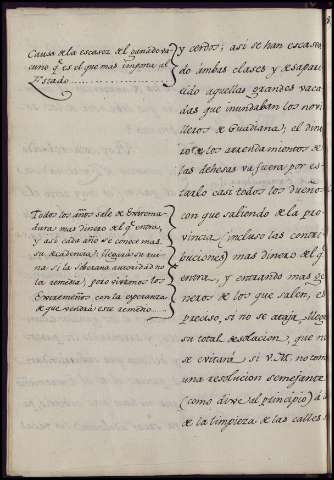 Causa de la escasez del ganado va-
cuno q.e es el que mas importa al
Estado
Todos los años sale de Extrema-
dura mas dinero del q.e entra,
y asi cada año se conoce mas
su decadencia; llegará su rui-
na si la soberana autoridad no
la remedia; pero vivimos los
Extremeños con la esperanza
de que vendrá este remedio
y cerdos; asi se han escasea
do ámbas clases y desapare
cido aquellas grandes vaca
das que inundaban los novi
lleros de Guadiana; el dine
ro de los arrendamientos de
las dehesas va fuera por es-
tarlo casi todos los dueños
con que saliendo de la pro-
vincia (incluso las contri
buciones) mas dinero del q.
entra, y entrando mas ge
neros de los que salen, es
preciso, si no se ataja, llegue
su total desolacion, que no
se evitará si V.M. no toma
una resolucion semejante
(como dixe al principio) á
de la limpieza de las calles